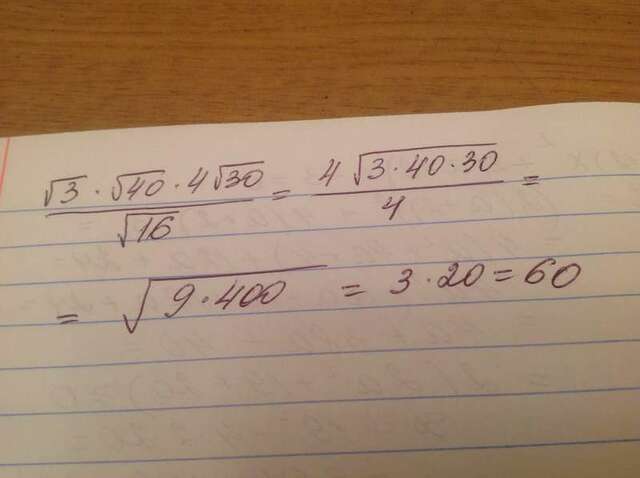 √3 · √40 · 4√30 / √16 = 4 √3 · 40 · 30 / 4 =
= √9 · 400 = 3 · 20 = 60